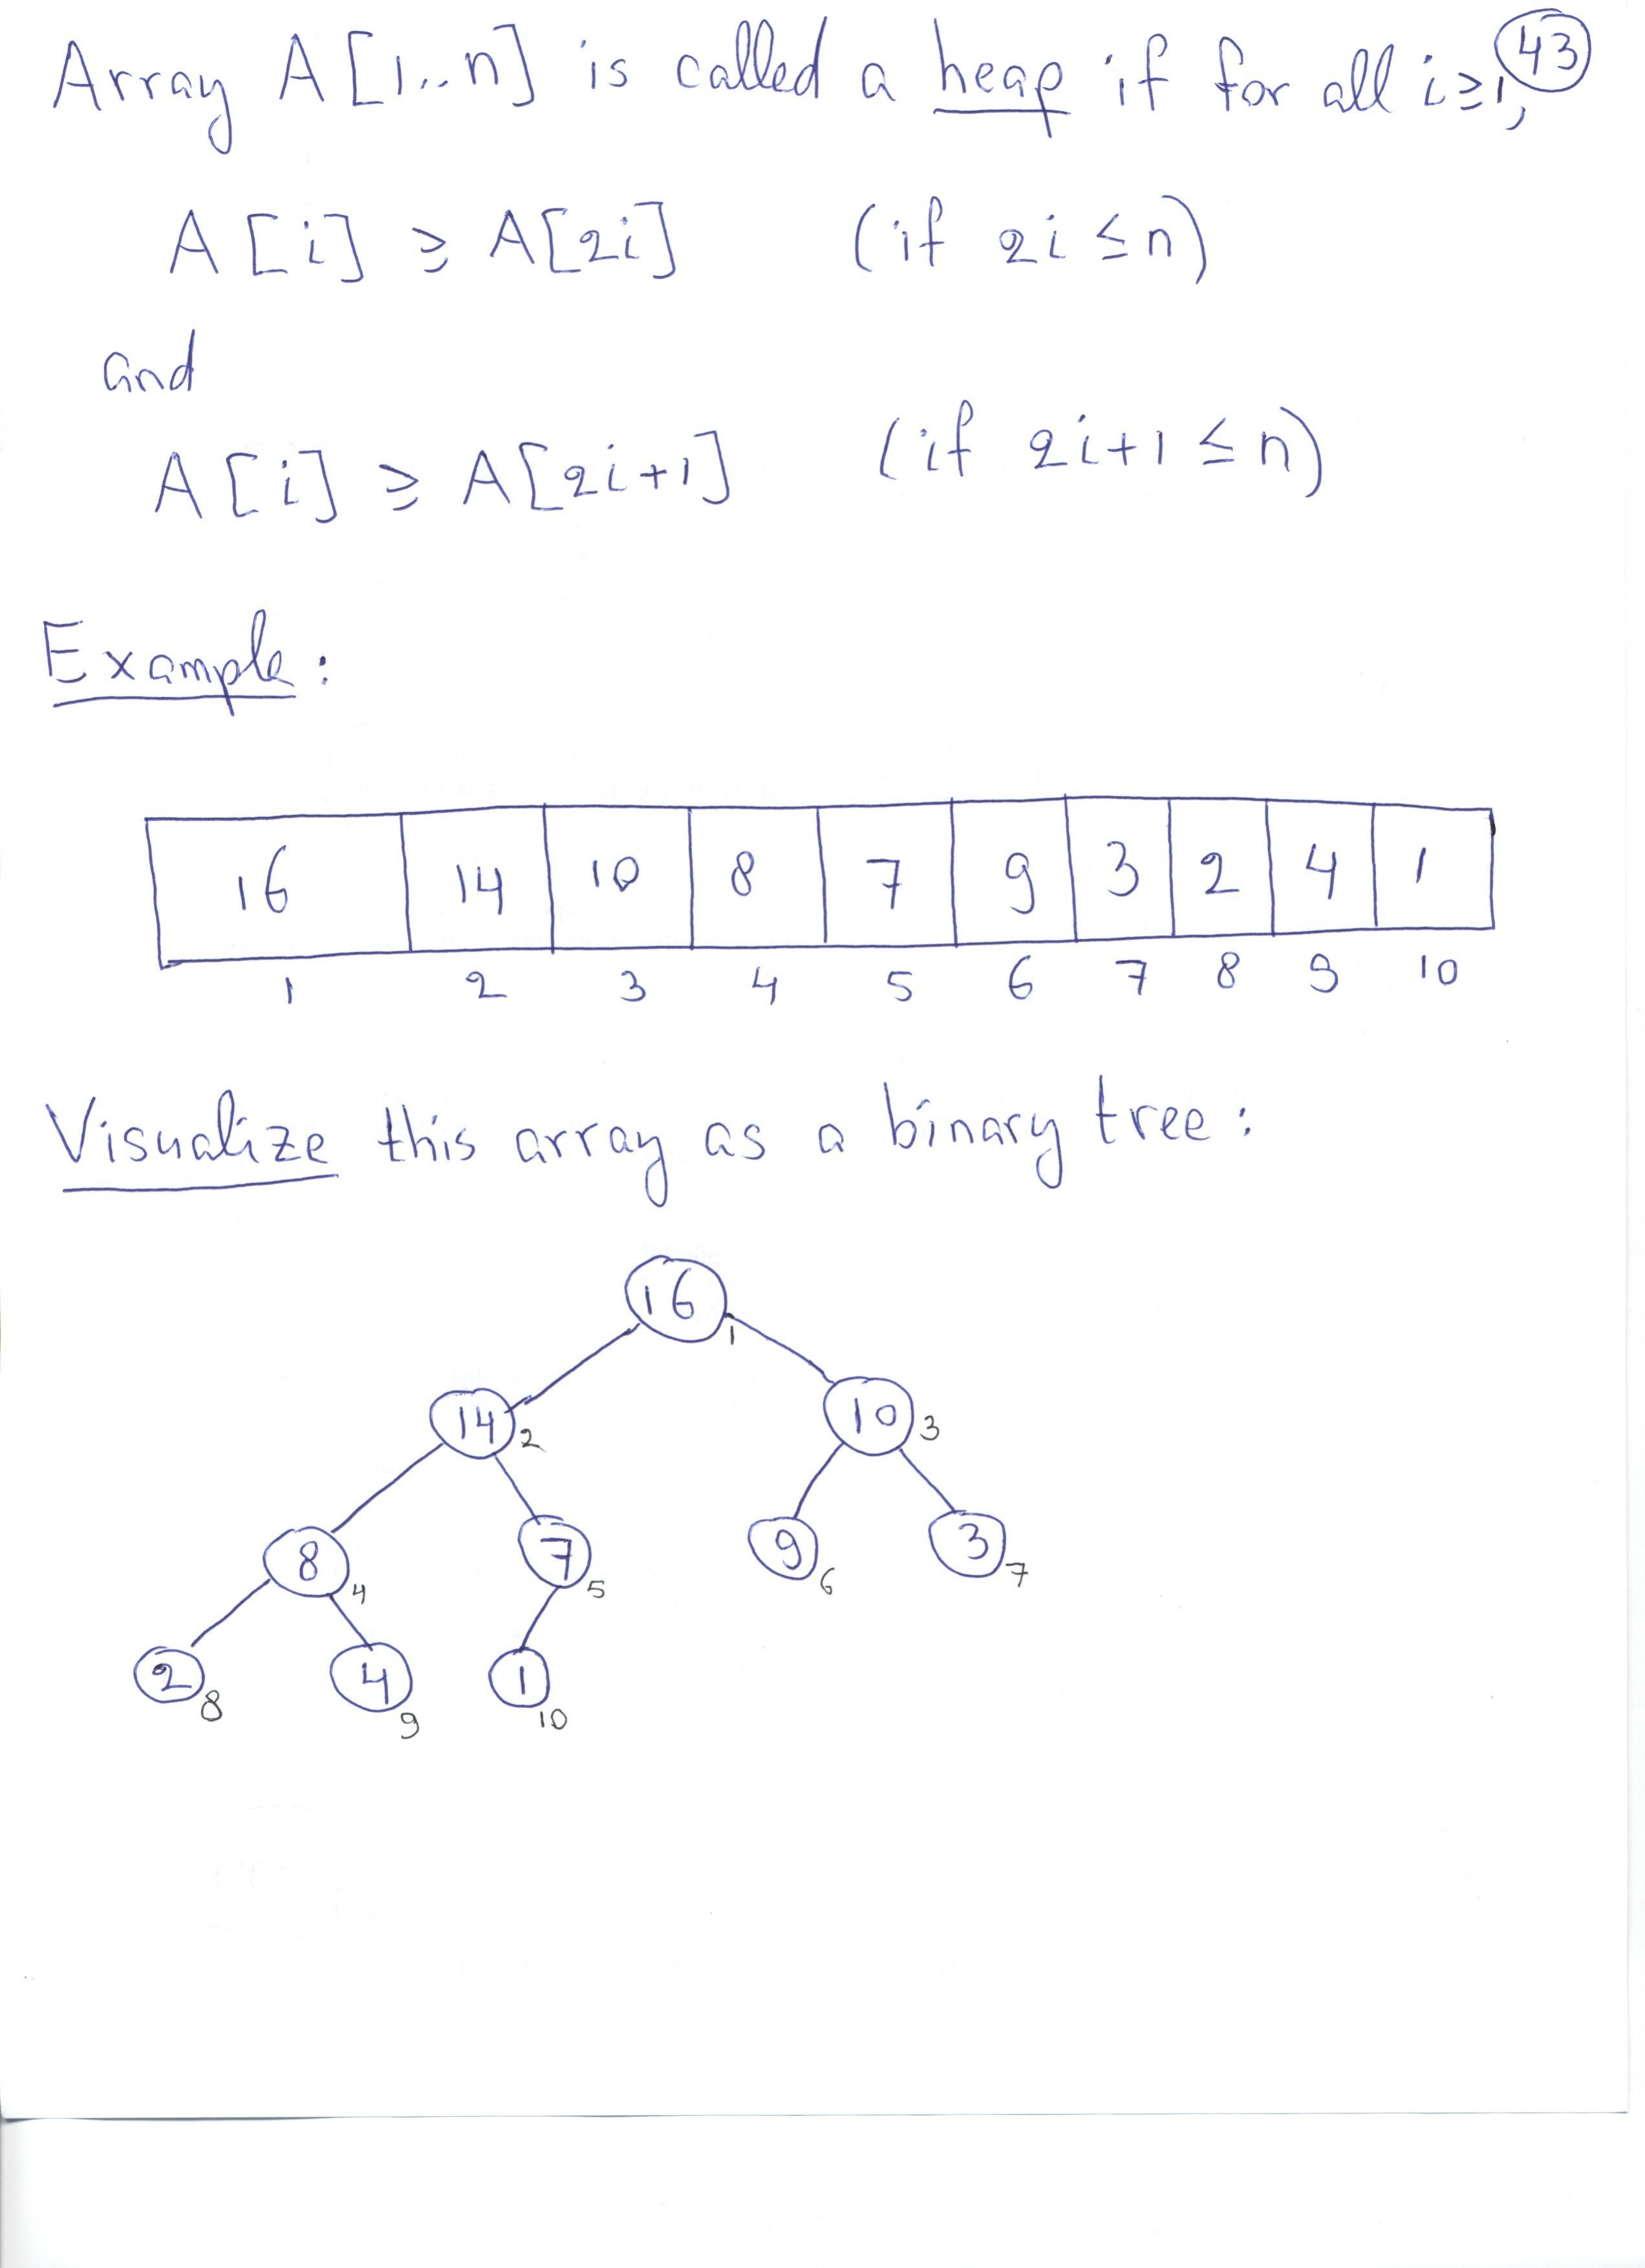 43
Array A[1..n] is called a heap if for all i≥1,
A[i] ≥ A[2i] (if 2i ≤ n)
and
A[i] ≥ A[2i+1] (if 2i+1 ≤ n)
Example:
16 14 10 8 7 9 3 2 4 1
1 2 3 4 5 6 7 8 9 10
Visualize this array as a binary tree:
16 1
14 2 10 3
8 4 7 5 9 6 3 7
2 8 4 9 1 10